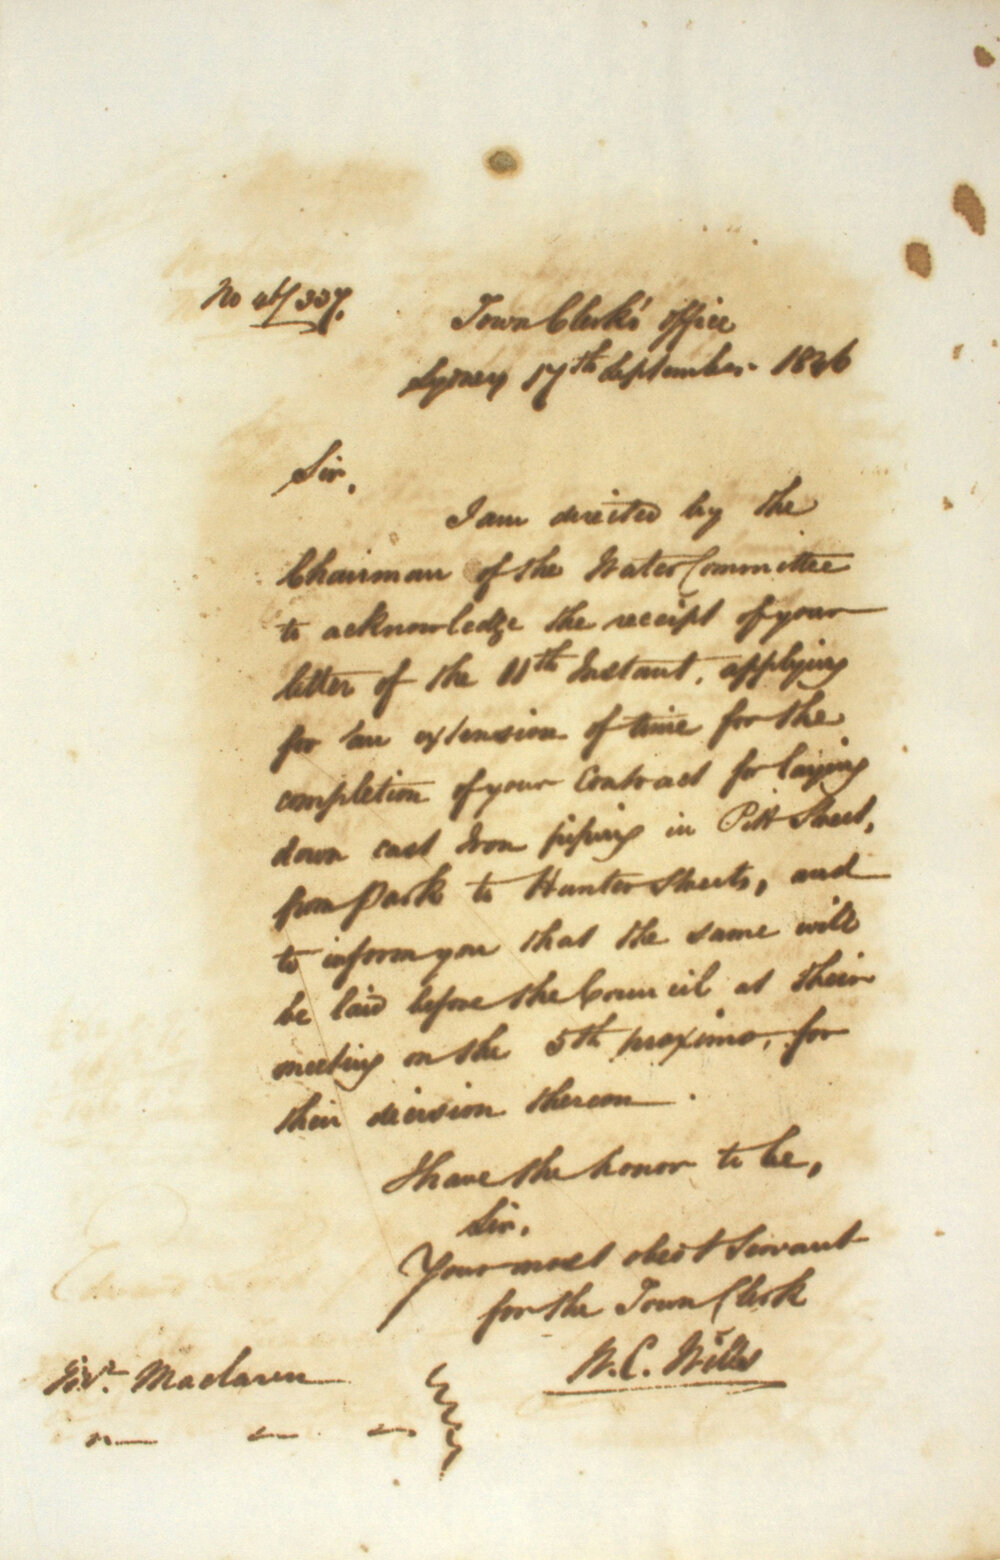 No 46/337.
Town Clerk's Office
Sydney 17th September 1846
Sir,
I am directed by the
Chairman of the Water Committee
to acknowledge the receipt of your
letter of the 11th Instant, applying
for an extension of time for the
completion of your Contract for laying
down cast Iron piping in Pitt Street,
from Park to Hunter Streets, and
to inform you that the same will
be laid before the Council at their
meeting on the 5th proximo, for
their decision thereon.
I have the honor to be,
Sir,
Your most obedt Servant
for the Town Clerk
W. C. Wills
Maclaren